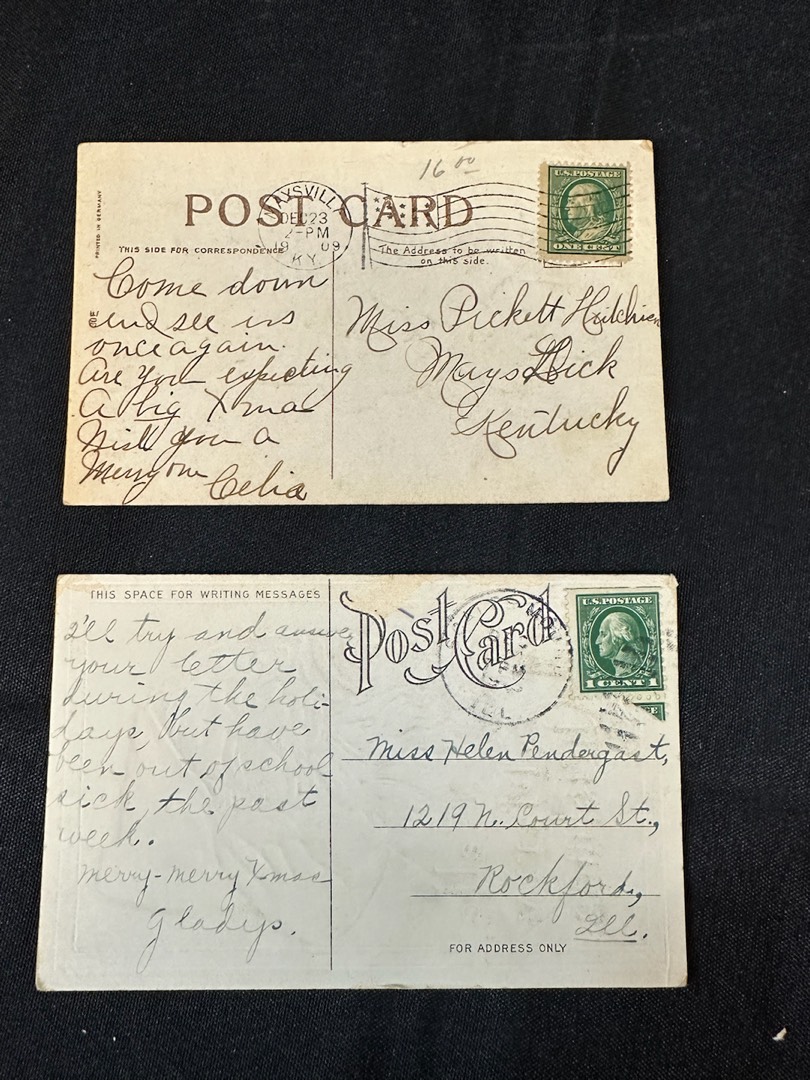 16 00
POST CARD
MAYSVILLE
DEC 23
2-PM
19 09
KY.
U.S. POSTAGE
ONE CENT
PRINTED IN GERMANY
THIS SIDE FOR CORRESPONDENCE
The Address to be written
on this side.
Come down
and see us
once again.
Are you expecting
A big Xmas
Wish you a
Merry one
Celia
Miss Pickett
Mays Lick
Kentucky
THIS SPACE FOR WRITING MESSAGES
Post Card
U.S. POSTAGE
1 CENT 1
I'll try and answer
your letter
during the holi-
days, but have
been out of school
sick, the past
week.
Merry-merry Xmas
Gladys.
Miss Helen Pendergast,
1219 N. Court St.,
Rockford,
Ill.
FOR ADDRESS ONLY